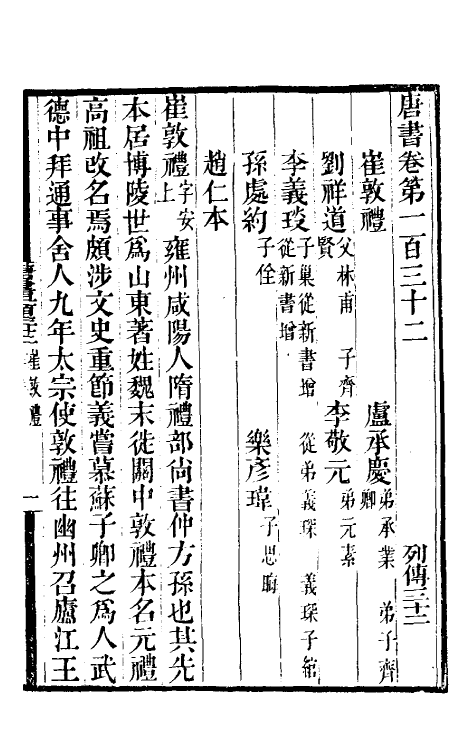 唐書卷第一百三十二　列傳三十二
崔敦禮　盧承慶 弟承業　弟子齊卿
劉祥道 父林甫　子齊賢　李敬元 弟元素
李義琰 子巢從新書增　從弟義琛　義琛子綰從新書增
孫處約 子佺　樂彥瑋 子思晦
趙仁本
崔敦禮 字安上 雍州咸陽人隋禮部尚書仲方孫也其先
本居博陵世爲山東著姓魏末徙關中敦禮本名元禮
高祖改名焉頗涉文史重節義嘗慕蘇子卿之爲人武
德中拜通事舍人九年太宗使敦禮往幽州召廬江王
崔敦禮　一